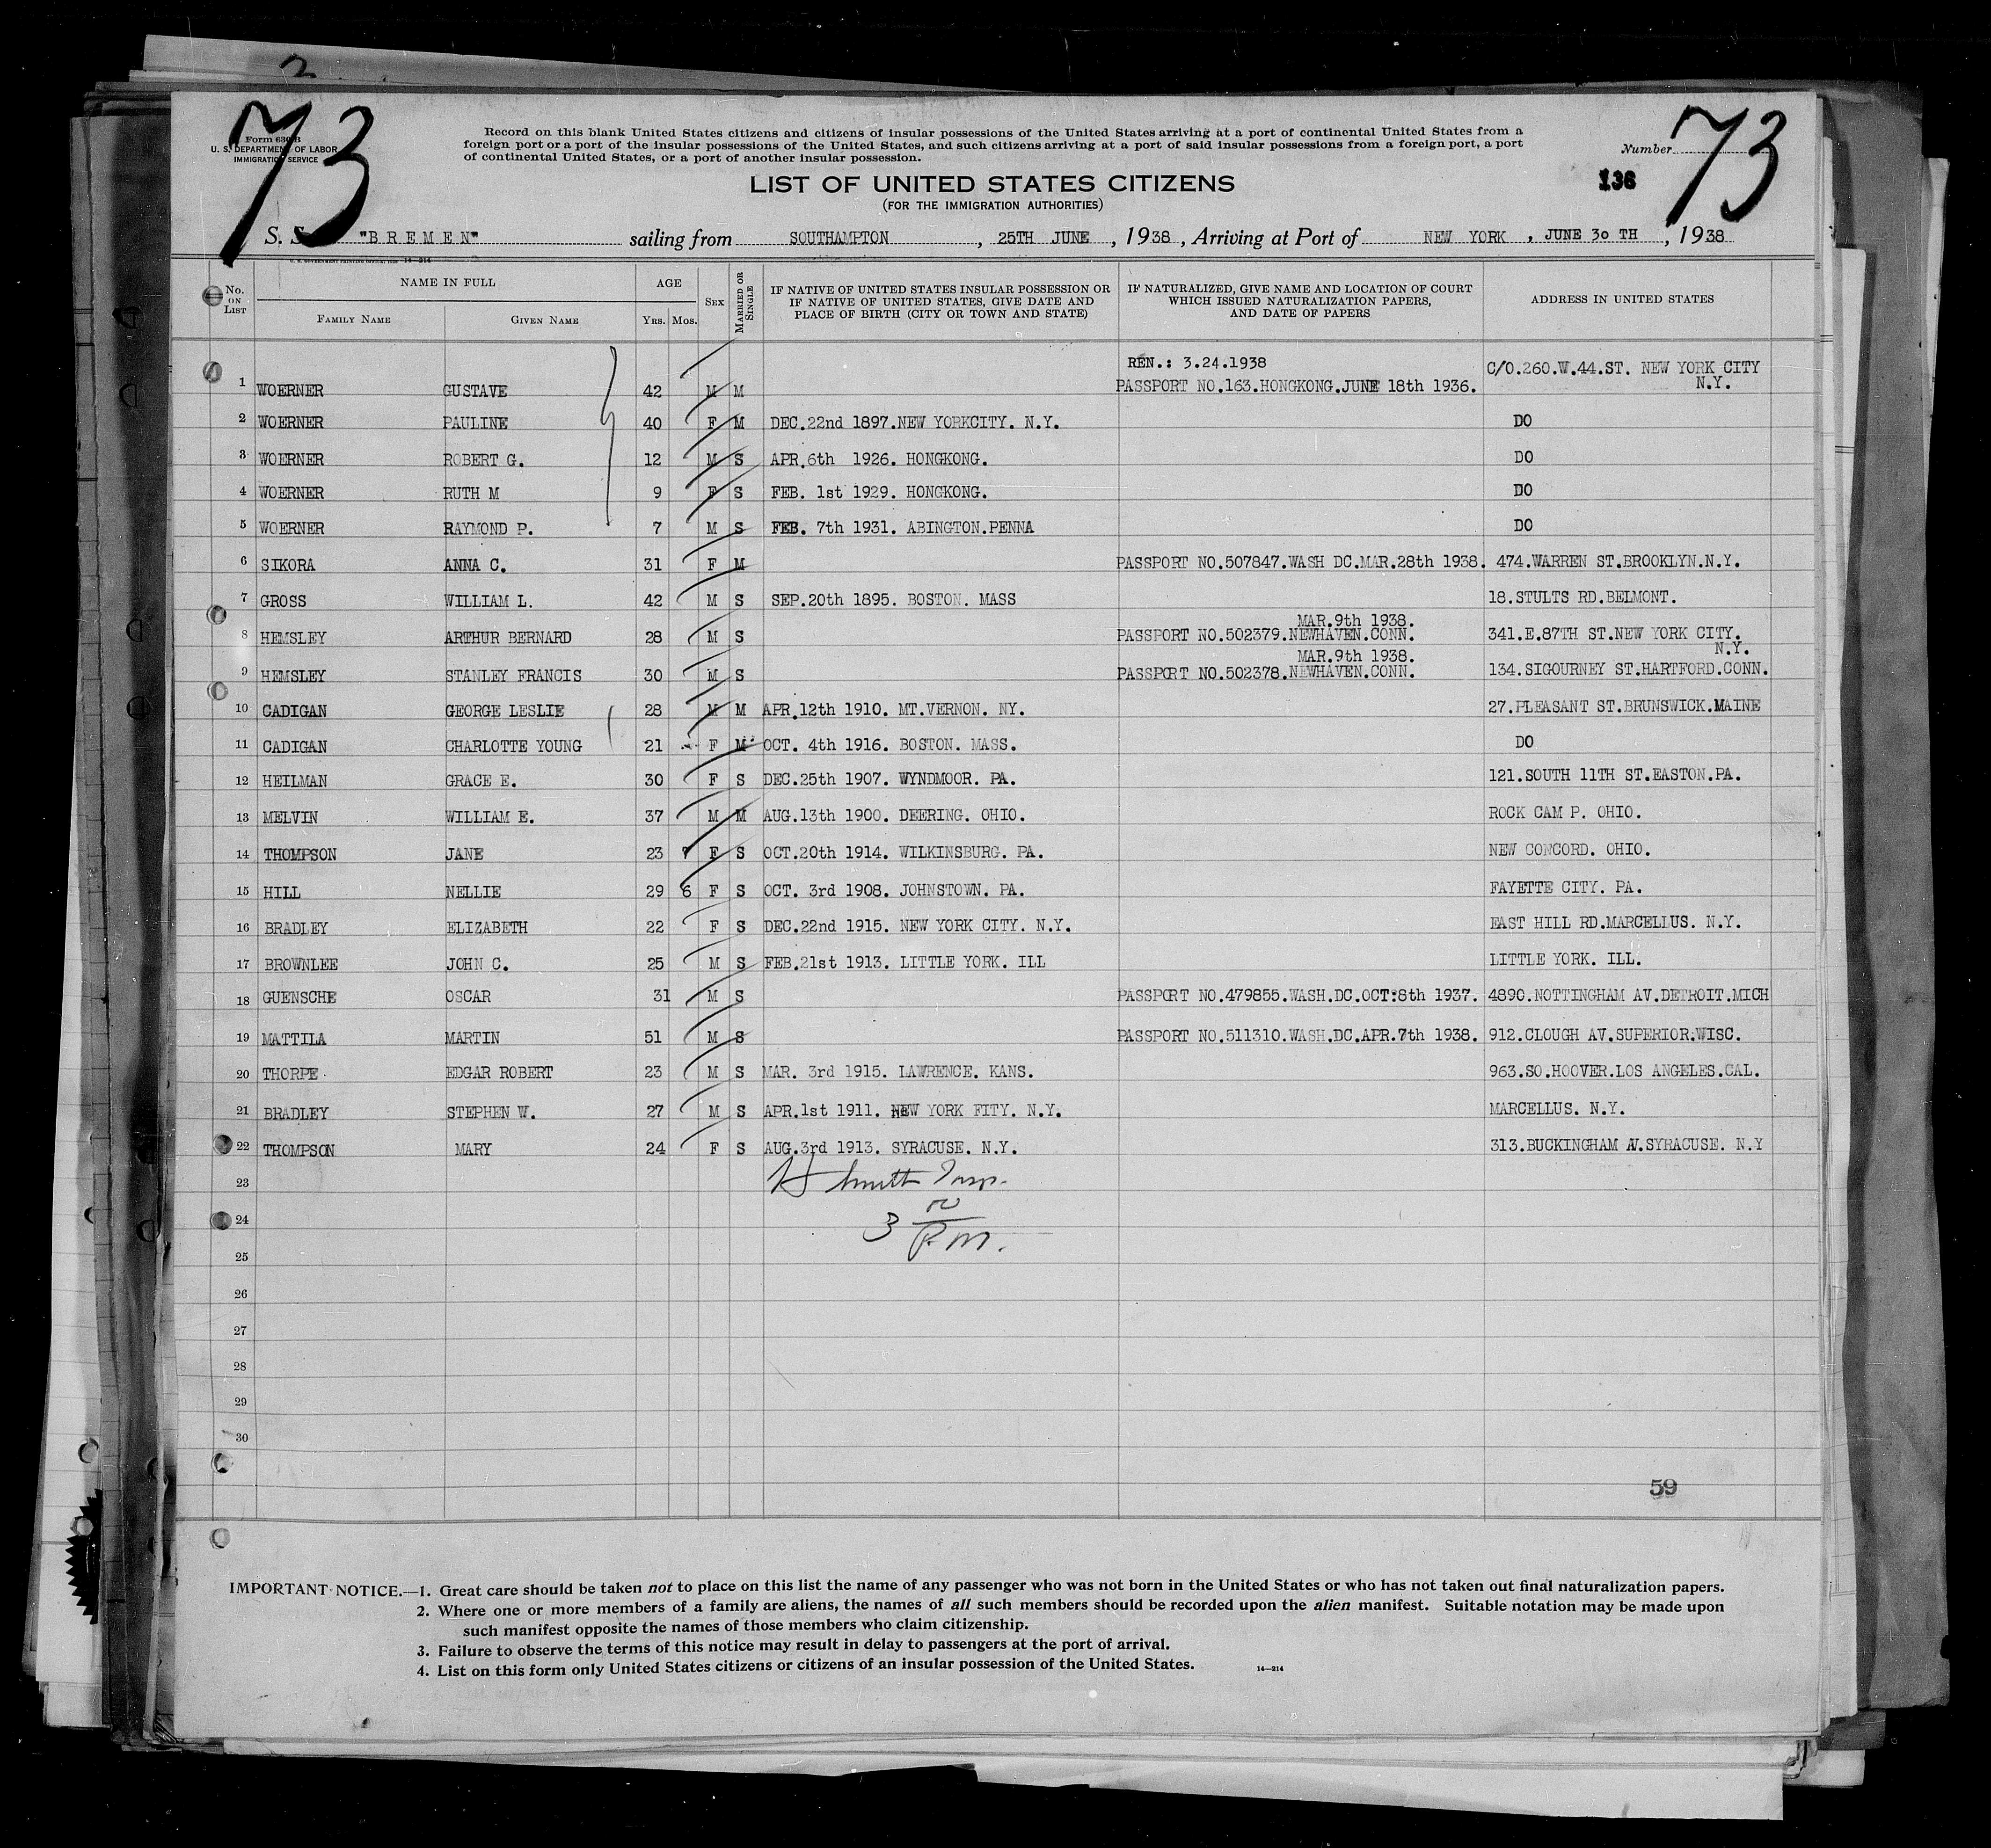 73
73
Form 630 B
U. S. DEPARTMENT OF LABOR
IMMIGRATION SERVICE
Record on this blank United States citizens and citizens of insular possessions of the United States arriving at a port of continental United States from a
foreign port or a port of the insular possessions of the United States, and such citizens arriving at a port of said insular possessions from a foreign port, a port
of continental United States, or a port of another insular possession.
Number
136
LIST OF UNITED STATES CITIZENS
(FOR THE IMMIGRATION AUTHORITIES)
S. S. "BREMEN" sailing from SOUTHAMPTON, 25TH JUNE, 1938, Arriving at Port of NEW YORK, JUNE 30 TH, 1938
No. ON LIST
NAME IN FULL
FAMILY NAME
GIVEN NAME
AGE
YRS. MOS.
SEX
MARRIED OR SINGLE
IF NATIVE OF UNITED STATES INSULAR POSSESSION OR
IF NATIVE OF UNITED STATES, GIVE DATE AND
PLACE OF BIRTH (CITY OR TOWN AND STATE)
IF NATURALIZED, GIVE NAME AND LOCATION OF COURT
WHICH ISSUED NATURALIZATION PAPERS,
AND DATE OF PAPERS
ADDRESS IN UNITED STATES
REN.: 3.24.1938 C/O.260.W.44.ST. NEW YORK CITY
1 WOERNER GUSTAVE 42 M M PASSPORT NO.163.HONGKONG.JUNE 18th 1936. N.Y.
2 WOERNER PAULINE 40 F M DEC.22nd 1897.NEW YORKCITY. N.Y. DO
3 WOERNER ROBERT G. 12 M S APR.6th 1926. HONGKONG. DO
4 WOERNER RUTH M 9 F S FEB. 1st 1929. HONGKONG. DO
5 WOERNER RAYMOND P. 7 M S FEB. 7th 1931. ABINGTON.PENNA DO
6 SIKORA ANNA C. 31 F M PASSPORT NO.507847.WASH DC.MAR.28th 1938. 474.WARREN ST.BROOKLYN.N.Y.
7 GROSS WILLIAM L. 42 M S SEP.20th 1895. BOSTON. MASS 18.STULTS RD.BELMONT.
MAR.9th 1938.
8 HEMSLEY ARTHUR BERNARD 28 M S PASSPORT NO.502379.NEWHAVEN.CONN. 341.E.87TH ST.NEW YORK CITY.
MAR.9th 1938. N.Y.
9 HEMSLEY STANLEY FRANCIS 30 M S PASSPORT NO.502378.NEWHAVEN.CONN. 134.SIGOURNEY ST.HARTFORD.CONN.
10 CADIGAN GEORGE LESLIE 28 M M APR.12th 1910. MT.VERNON. NY. 27.PLEASANT ST.BRUNSWICK.MAINE
11 CADIGAN CHARLOTTE YOUNG 21 F M OCT. 4th 1916. BOSTON. MASS. DO
12 HEILMAN GRACE E. 30 F S DEC.25th 1907. WYNDMOOR. PA. 121.SOUTH 11TH ST.EASTON.PA.
13 MELVIN WILLIAM E. 37 M M AUG.13th 1900. DEERING. OHIO. ROCK CAM P. OHIO.
14 THOMPSON JANE 23 F S OCT.20th 1914. WILKINSBURG. PA. NEW CONCORD. OHIO.
15 HILL NELLIE 29 6 F S OCT. 3rd 1908. JOHNSTOWN. PA. FAYETTE CITY. PA.
16 BRADLEY ELIZABETH 22 F S DEC.22nd 1915. NEW YORK CITY. N.Y. EAST HILL RD.MARCELLUS. N.Y.
17 BROWNLEE JOHN C. 25 M S FEB.21st 1913. LITTLE YORK. ILL LITTLE YORK. ILL.
18 GUENSCHE OSCAR 31 M S PASSPORT NO.479855.WASH.DC.OCT:8th 1937. 4890.NOTTINGHAM AV.DETROIT.MICH
19 MATTILA MARTIN 51 M S PASSPORT NO.511310.WASH.DC.APR.7th 1938. 912.CLOUGH AV.SUPERIOR.WISC.
20 THORPE EDGAR ROBERT 23 M S MAR. 3rd 1915. LAWRENCE. KANS. 963.SO.HOOVER.LOS ANGELES.CAL.
21 BRADLEY STEPHEN W. 27 M S APR.1st 1911. NEW YORK FITY. N.Y. MARCELLUS. N.Y.
22 THOMPSON MARY 24 F S AUG.3rd 1913. SYRACUSE. N.Y. 313.BUCKINGHAM AV.SYRACUSE. N.Y
23 Smith Insp.
24
3 P.M.
25
26
27
28
29
30
59
IMPORTANT NOTICE.—1. Great care should be taken not to place on this list the name of any passenger who was not born in the United States or who has not taken out final naturalization papers.
2. Where one or more members of a family are aliens, the names of all such members should be recorded upon the alien manifest. Suitable notation may be made upon
such manifest opposite the names of those members who claim citizenship.
3. Failure to observe the terms of this notice may result in delay to passengers at the port of arrival.
4. List on this form only United States citizens or citizens of an insular possession of the United States.
14—214